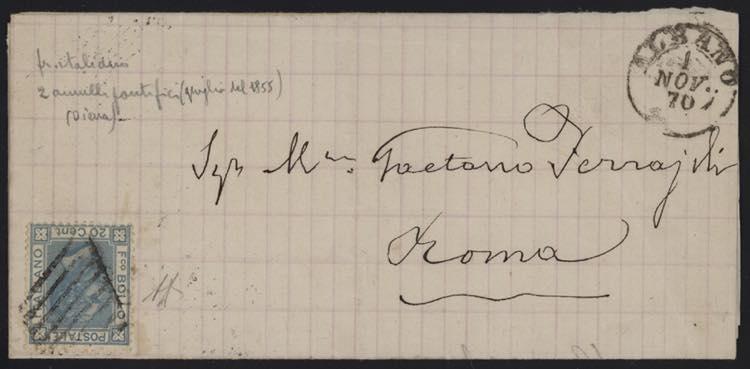 fr. italiano
2 annulli pontifici (griglia del 1855)
(Diena)
ALBANO
1
NOV.
70
Sigr Mse Gaetano Ferrajoli
Roma
20 Cent
Fco BOLLO
ITALIANO
POSTALE